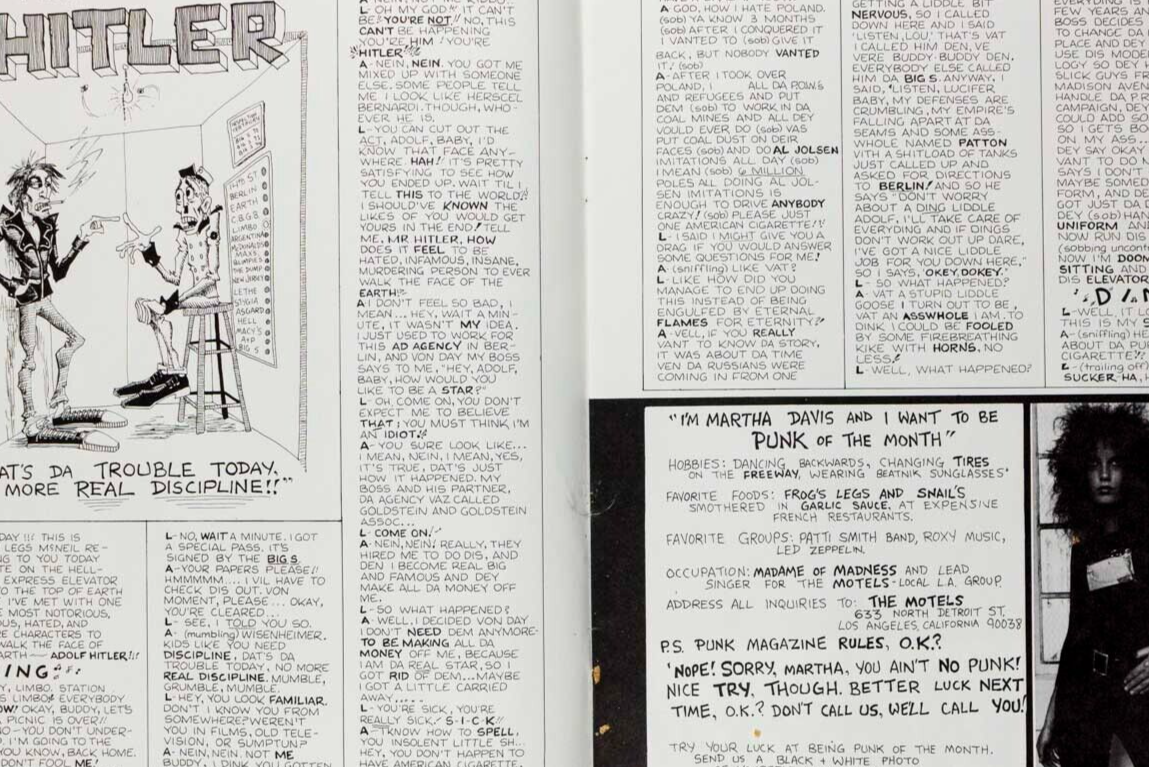 HITLER
ACROST ST
BERLIN
EARTH
C.B.G.B.
LIMBO
ARGENTINA
McDONALDS
MAXS
GLIMPIES
THE DUMP
NEW JERSEY
LETHE
STYGIA
ASGARD
HELL
MACY'S
A&P
BIG S
AT'S DA TROUBLE TODAY.
MORE REAL DISCIPLINE!!"
DAY !!! THIS IS
LEGS McNEIL RE-
NG TO YOU TODAY
TE ON THE HELL-
EXPRESS ELEVATOR
O THE TOP OF EARTH
I'VE MET WITH ONE
E MOST NOTORIOUS,
OUS, HATED, AND
RE CHARACTERS TO
WALK THE FACE OF
ARTH — ADOLF HITLER!!!
ING
Y, LIMBO. STATION
S LIMBO! EVERYBODY
OW! OKAY, BUDDY, LET'S
PICNIC IS OVER!!
NO-YOU DON'T UNDER-
. I'M GOING TO THE
YOU KNOW, BACK HOME.
DON'T FOOL ME!
L- NO, WAIT A MINUTE. I GOT
A SPECIAL PASS. IT'S
SIGNED BY THE BIG S.
A-YOUR PAPERS PLEASE!!
HMMMMM.... I VIL HAVE TO
CHECK DIS OUT. VON
MOMENT, PLEASE... OKAY,
YOU'RE CLEARED...
L- SEE, I TOLD YOU SO.
A- (mumbling) WISENHEIMER.
KIDS LIKE YOU NEED
DISCIPLINE. DAT'S DA
TROUBLE TODAY, NO MORE
REAL DISCIPLINE. MUMBLE,
GRUMBLE, MUMBLE.
L-HEY, YOU LOOK FAMILIAR.
DON'T I KNOW YOU FROM
SOMEWHERE? WEREN'T
YOU IN FILMS, OLD TELE-
VISION, OR SUMPTUN?
A- NEIN, NEIN. NOT ME
BUDDY. I DINK YOU GOTTEN
L- OH MY GOD!! IT CAN'T
BE! YOU'RE NOT!! NO, THIS
CAN'T BE HAPPENING
YOU'RE HIM! YOU'RE
HITLER
A-NEIN, NEIN. YOU GOT ME
MIXED UP WITH SOMEONE
ELSE. SOME PEOPLE TELL
ME I LOOK LIKE HERSCEL
BERNARDI. THOUGH, WHO-
EVER HE IS.
L-YOU CAN CUT OUT THE
ACT, ADOLF, BABY, I'D
KNOW THAT FACE ANY-
WHERE. HAH! IT'S PRETTY
SATISFYING TO SEE HOW
YOU ENDED UP. WAIT TIL I
TELL THIS TO THE WORLD!!
I SHOULD'VE KNOWN THE
LIKES OF YOU WOULD GET
YOURS IN THE END! TELL
ME, MR HITLER, HOW
DOES IT FEEL TO BE
HATED, INFAMOUS, INSANE,
MURDERING PERSON TO EVER
WALK THE FACE OF THE
EARTH?
A I DON'T FEEL SO BAD, I
MEAN... HEY, WAIT A MIN-
UTE, IT WASN'T MY IDEA.
I JUST USED TO WORK FOR
THIS AD AGENCY IN BER-
LIN, AND VON DAY MY BOSS
SAYS TO ME, "HEY, ADOLF,
BABY, HOW WOULD YOU
LIKE TO BE A STAR?"
L- OH, COME ON, YOU DON'T
EXPECT ME TO BELIEVE
THAT! YOU MUST THINK I'M
AN IDIOT!!
A- YOU SURE LOOK LIKE...
I MEAN, NEIN, I MEAN, YES,
IT'S TRUE, DAT'S JUST
HOW IT HAPPENED. MY
BOSS AND HIS PARTNER,
DA AGENCY VAZ CALLED
GOLDSTEIN AND GOLDSTEIN
ASSOC...
L- COME ON!
A-NEIN, NEIN! REALLY, THEY
HIRED ME TO DO DIS, AND
DEN I BECOME REAL BIG
AND FAMOUS AND DEY
MAKE ALL DA MONEY OFF
ME.
L- SO WHAT HAPPENED?
A- WELL, I DECIDED VON DAY
I DON'T NEED DEM ANYMORE-
TO BE MAKING ALL DA
MONEY OFF ME, BECAUSE
I AM DA REAL STAR, SO I
GOT RID OF DEM...MAYBE
I GOT A LITTLE CARRIED
AWAY...
L- YOU'RE SICK, YOU'RE
REALLY SICK! S-I-C-K!!
A- I KNOW HOW TO SPELL,
YOU INSOLENT LITTLE SH...
HEY, YOU DON'T HAPPEN TO
HAVE AMERICAN CIGARETTE,
A-GOD, HOW I HATE POLAND.
(sob) YA KNOW 3 MONTHS
(sob) AFTER I CONQUERED IT
I WANTED TO (sob) GIVE IT
BACK, BUT NOBODY WANTED
IT! (sob)
A-AFTER I TOOK OVER
POLAND, I ALL DA P.O.W.S
AND REFUGEES AND PUT
DEM (sob) TO WORK IN DA
COAL MINES AND ALL DEY
VOULD EVER DO (sob) VAS
PUT COAL DUST ON DEIR
FACES (sob) AND DO AL JOLSEN
IMITATIONS ALL DAY (sob)
I MEAN (sob) 6 MILLION
POLES ALL DOING AL JOL-
SEN IMITATIONS IS
ENOUGH TO DRIVE ANYBODY
CRAZY! (sob) PLEASE JUST
ONE AMERICAN CIGARETTE!!
L- I SAID I MIGHT GIVE YOU A
DRAG IF YOU WOULD ANSWER
SOME QUESTIONS FOR ME!
A- (sniffling) LIKE VAT?
L- LIKE HOW DID YOU
MANAGE TO END UP DOING
THIS INSTEAD OF BEING
ENGULFED BY ETERNAL
FLAMES FOR ETERNITY?
A-VELL, IF YOU REALLY
VANT TO KNOW DA STORY,
IT WAS ABOUT DA TIME
VEN DA RUSSIANS WERE
COMING IN FROM ONE
GETTING A LIDDLE BIT
NERVOUS, SO I CALLED
DOWN HERE AND I SAID
'LISTEN, LOU,' THAT'S VAT
I CALLED HIM DEN, VE
VERE BUDDY-BUDDY DEN.
EVERYBODY ELSE CALLED
HIM DA BIG S. ANYWAY, I
SAID, "LISTEN, LUCIFER
BABY, MY DEFENSES ARE
CRUMBLING, MY EMPIRE'S
FALLING APART AT DA
SEAMS AND SOME ASS-
WHOLE NAMED PATTON
WITH A SHITLOAD OF TANKS
JUST CALLED UP AND
ASKED FOR DIRECTIONS
TO BERLIN! AND SO HE
SAYS "DON'T WORRY
ABOUT A DING LIDDLE
ADOLF, I'LL TAKE CARE OF
EVERYDING AND IF DINGS
DON'T WORK OUT UP DARE,
I'VE GOT A NICE LIDDLE
JOB FOR YOU DOWN HERE,"
SO I SAYS, 'OKEY, DOKEY."
L- SO WHAT HAPPENED?
A- VAT A STUPID LIDDLE
GOOSE I TURN OUT TO BE,
VAT AN ASSWHOLE I AM. TO
DINK I COULD BE FOOLED
BY SOME FIREBREATHING
KIKE WITH HORNS. NO
LESS!
L- WELL, WHAT HAPPENED?
EVERYDING IS
FEW YEARS AN
BOSS DECIDES
TO CHANGE DA I
PLACE AND DEY
USE DIS MODER
LOGY SO DEY H
SLICK GUYS FR
MADISON AVEN
HANDLE DA P.R.
CAMPAIGN, DEY
COULD ADD SO
SO I GETS BO
ON MY ASS...
DEY SAY OKAY
VANT TO DO N
SAYS I DON'T
MAYBE SOMED
FORM, AND DE
GOT JUST DA D
DEY (sob) HAN
UNIFORM AND
NOW RUN DIS
(sobbing uncont
NOW I'M DOOM
SITTING AND
DIS ELEVATOR
'D I N
L-WELL, IT LO
THIS IS MY S
A-(sniffling) HE
ABOUT DA PU
CIGARETTE?!
L-(trailing off)
SUCKER, HA, H
"I'M MARTHA DAVIS AND I WANT TO BE
PUNK OF THE MONTH"
HOBBIES: DANCING BACKWARDS, CHANGING TIRES
ON THE FREEWAY, WEARING BEATNIK SUNGLASSES'
FAVORITE FOODS: FROG'S LEGS AND SNAIL'S
SMOTHERED IN GARLIC SAUCE, AT EXPENSIVE
FRENCH RESTAURANTS.
FAVORITE GROUPS: PATTI SMITH BAND, ROXY MUSIC,
LED ZEPPELIN.
OCCUPATION: MADAME OF MADNESS AND LEAD
SINGER FOR THE MOTELS-LOCAL L.A. GROUP.
ADDRESS ALL INQUIRIES TO: THE MOTELS
633 NORTH DETROIT ST.
LOS ANGELES, CALIFORNIA 90038
P.S. PUNK MAGAZINE RULES, O.K.?
'NOPE! SORRY, MARTHA, YOU AIN'T NO PUNK!
NICE TRY, THOUGH. BETTER LUCK NEXT
TIME, O.K.? DON'T CALL US, WE'LL CALL YOU!
TRY YOUR LUCK AT BEING PUNK OF THE MONTH.
SEND US A BLACK + WHITE PHOTO